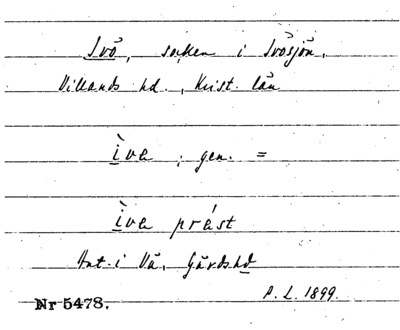 Ivö, socken i Ivösjön,
Villands hd., Krist. län
ìve ; gen. =
ìve prést
Ant. i Vä, Gärds hd
P. L. 1899.
Nr 5478.